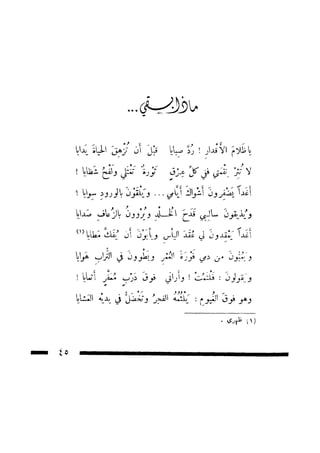 ماذا بقي ...
يا ظلامَ الأقدارِ ! رُدَّ صِبايا قبْلَ أن تُزهِقَ الحياةَ يَدايا
لا تُثِرْ نِقْمَتي ففي كلِّ عِرْقٍ ثورةٌ تَغْتَلي ولَفْحُ شظايا !
أغداً يَضْفِرونَ أشواكَ أيّامي ... ويَلْقَوْنَ بالورودِ سِوايا ؟
ويُذيقونَ سالِبي قَدَحَ الخُلْدِ ويُرْوُونَ بالزُّعافِ صَدايا
أغداً يَعْقِدونَ لي عُقَدَ اليأسِ ويأبَوْنَ أن يُفَكَّ مَطايا (١)
و من دمي فَوْرَةَ العُمْرِ ويَطْوونَ في التُّرابِ هَوايا
ويقولونَ : فَلْتَمُتْ ! وأراني فوقَ دَرْبٍ مُعَفَّرٍ أتَمايا !
وهو فوقَ الغُيومِ : يَلْثُمُهُ الفجرُ وتَخْضَلُّ في يديْهِ العَشايا
(١) ظهوري .
٤٥